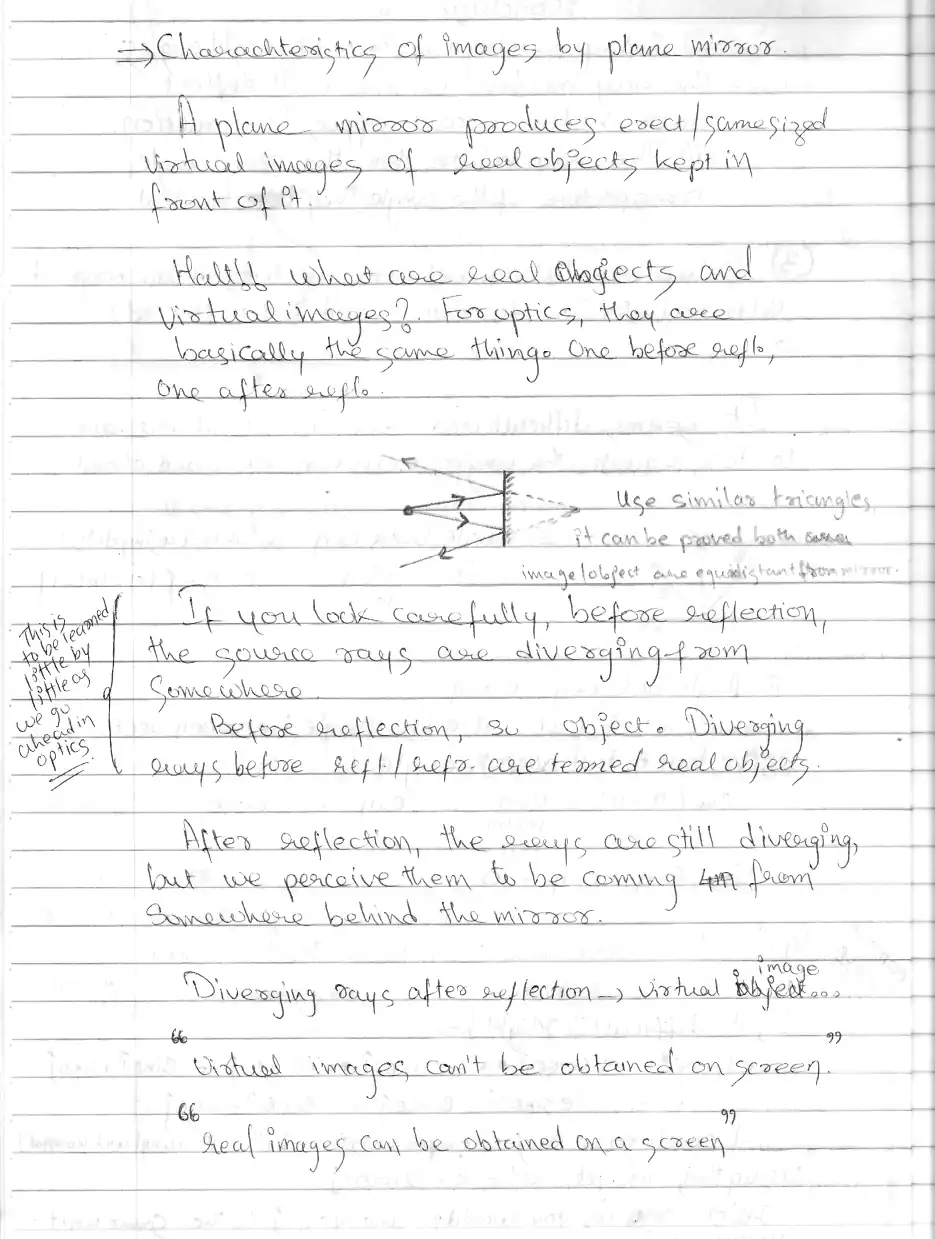 ⇒ Charachteristics of images by plane mirror.
A plane mirror produces erect/same sized
virtual images of real objects kept in
front of it.
Halt!! What are real objects and
virtual images?. For optics, they are
basically the same thing. One before refl.,
one after refl.
Use similar triangles,
it can be proved both
image/object are equidistant from mirror.
This is
to be learned
little by
little as
we go
ahead in
optics.
If you look carefully, before reflection,
the source rays are diverging from
somewhere.
Before reflection, so object. Diverging
rays before refl./refr. are termed real objects.
After reflection, the rays are still diverging,
but we perceive them to be coming from
Somewhere behind the mirror.
image
Diverging rays after reflection → virtual object...
"Virtual images can't be obtained on screen."
"real images can be obtained on a screen"